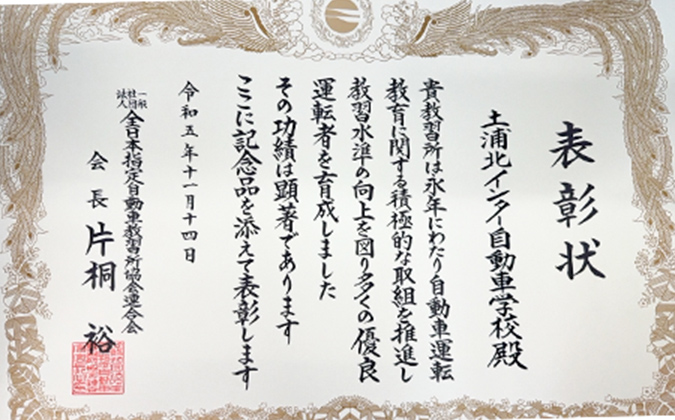 表彰状
土浦北インター自動車学校殿
貴教習所は永年にわたり自動車運転
教育に関する積極的な取組を推進し
教習水準の向上を図り多くの優良
運転者を育成しました
その功績は顕著であります
ここに記念品を添えて表彰します
令和五年十一月十四日
一般社団法人全日本指定自動車教習所協会連合会
会長片桐裕